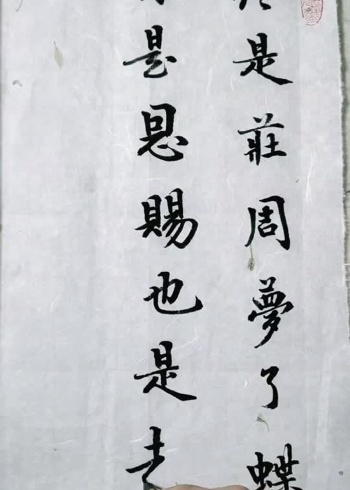 是莊周夢了蝶
是恩賜也是